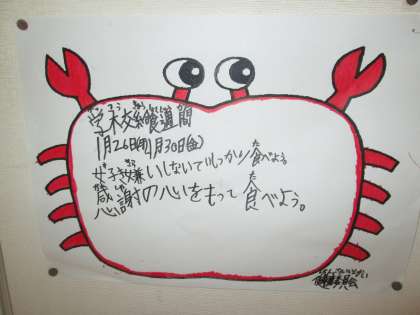 学校給食週間
1月26日(月)1月30日(金)
好き嫌いしないでしっかり食べよう。
感謝の心をもって食べよう。
健康委員会